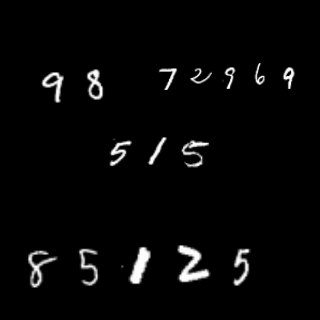 98 72969
515
85125